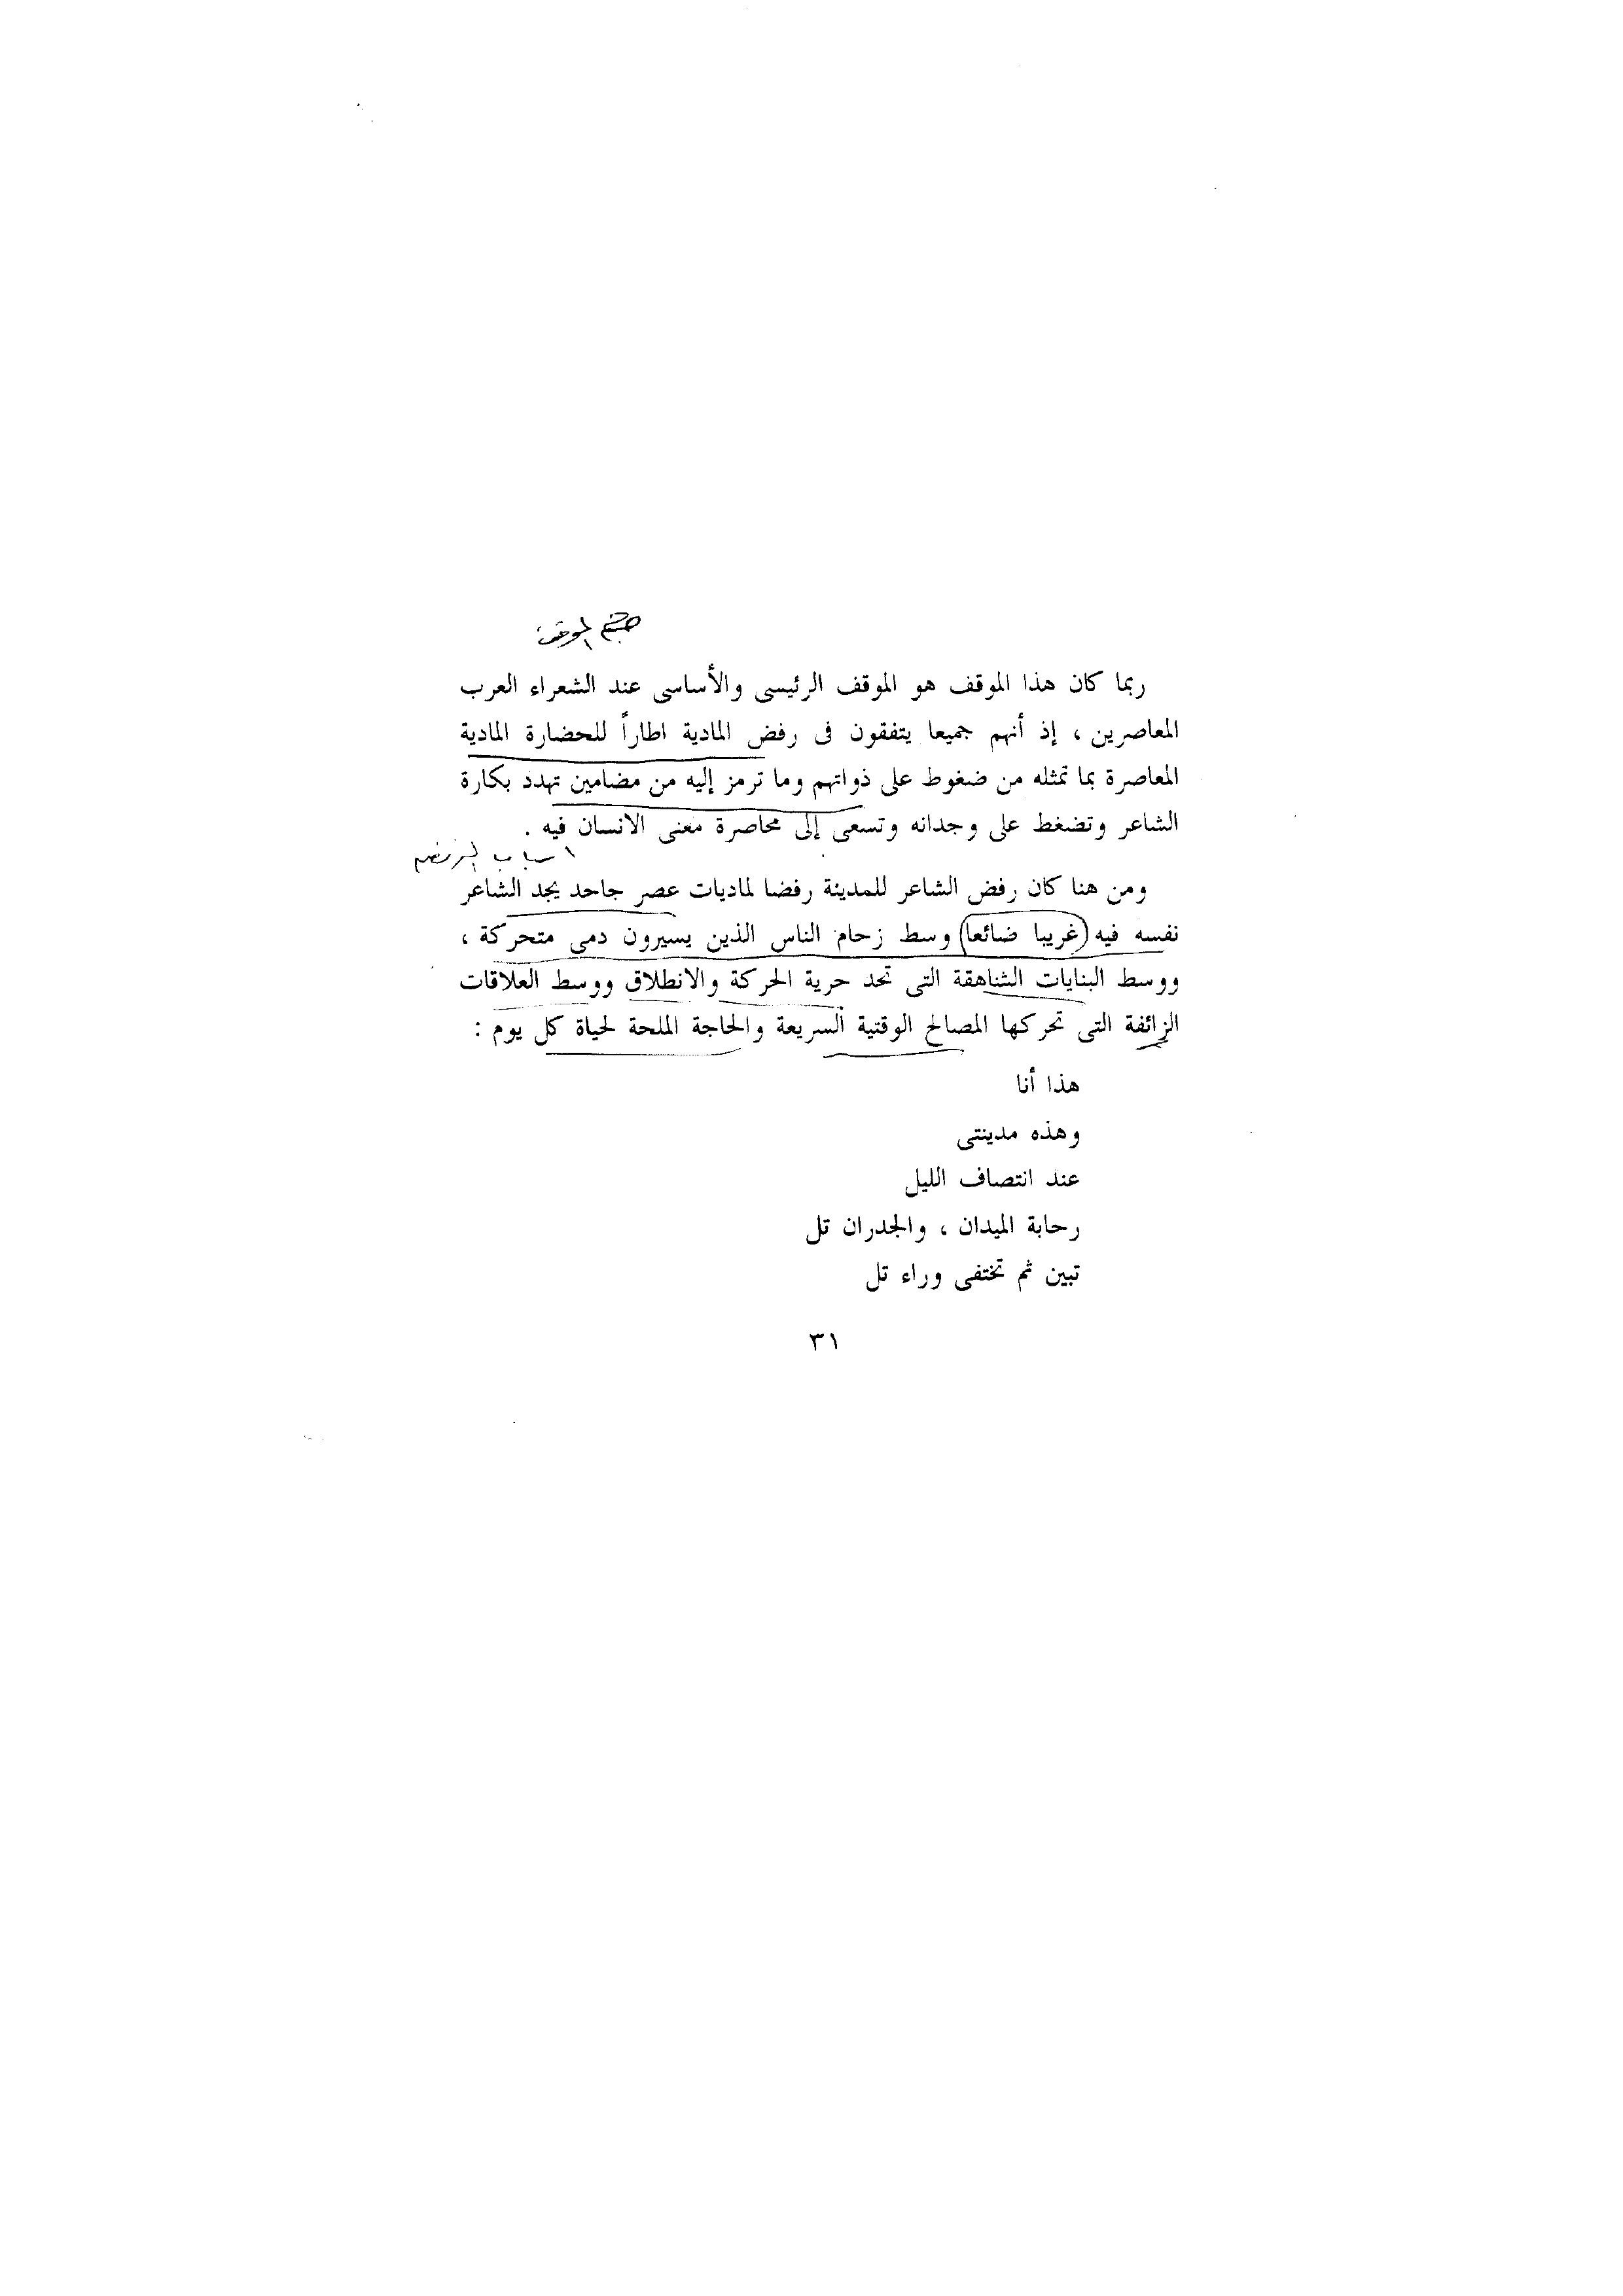 الموقف
ربما كان هذا الموقف هو الموقف الرئيسى والأساسى عند الشعراء العرب
المعاصرين ، إذ أنهم جميعا يتفقون فى رفض المادية اطاراً للحضارة المادية
المعاصرة بما تمثله من ضغوط على ذواتهم وما ترمز إليه من مضامين تهدد بكارة
الشاعر وتضغط على وجدانه وتسعى إلى محاصرة معنى الانسان فيه .
اسباب الرفض
ومن هنا كان رفض الشاعر للمدينة رفضا لماديات عصر جاحد يجد الشاعر
نفسه فيه (غريبا ضائعا) وسط زحام الناس الذين يسيرون دمى متحركة ،
ووسط البنايات الشاهقة التى تحد حرية الحركة والانطلاق ووسط العلاقات
الزائفة التى تحركها المصالح الوقتية السريعة والحاجة الملحة لحياة كل يوم :
هذا أنا
وهذه مدينتى
عند انتصاف الليل
رحابة الميدان ، والجدران تل
تبين ثم تختفى وراء تل
٣١